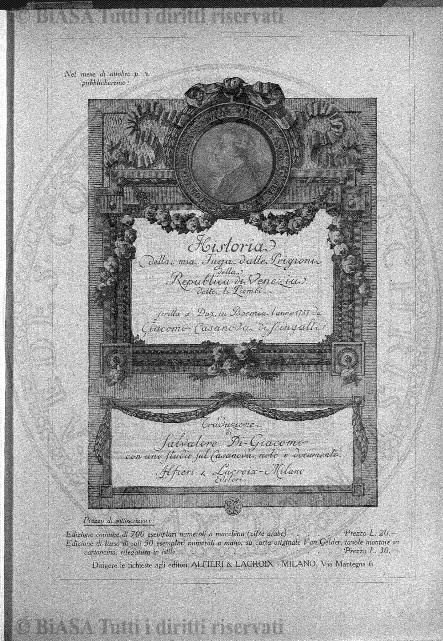 © BiASA Tutti i diritti riservati
Nel mese di ottobre p. v.
pubblicheremo:
Historia
della mia Fuga dalle Prigioni
della
Republica di Venezia
dette li Piombi
scritta a Dux in Boemia l'anno 1787 da
Giacomo Casanova di Seingalt
Traduzione
di
Salvatore Di-Giacomo
con uno studio sul Casanova, note e documenti
Alfieri & Lacroix - Milano
Editori
Prezzo di sottoscrizione:
Edizione comune di 700 esemplari numerati a macchina (cifre arabe) Prezzo L. 20.—
Edizione di lusso di soli 50 esemplari numerati a mano, su carta originale Van Gelder, tavole montate su
cartoncino, rilegatura in stile Prezzo L. 30.—
Dirigere le richieste agli editori ALFIERI & LACROIX - MILANO, Via Mantegna 6.
© BiASA Tutti i diritti riservati